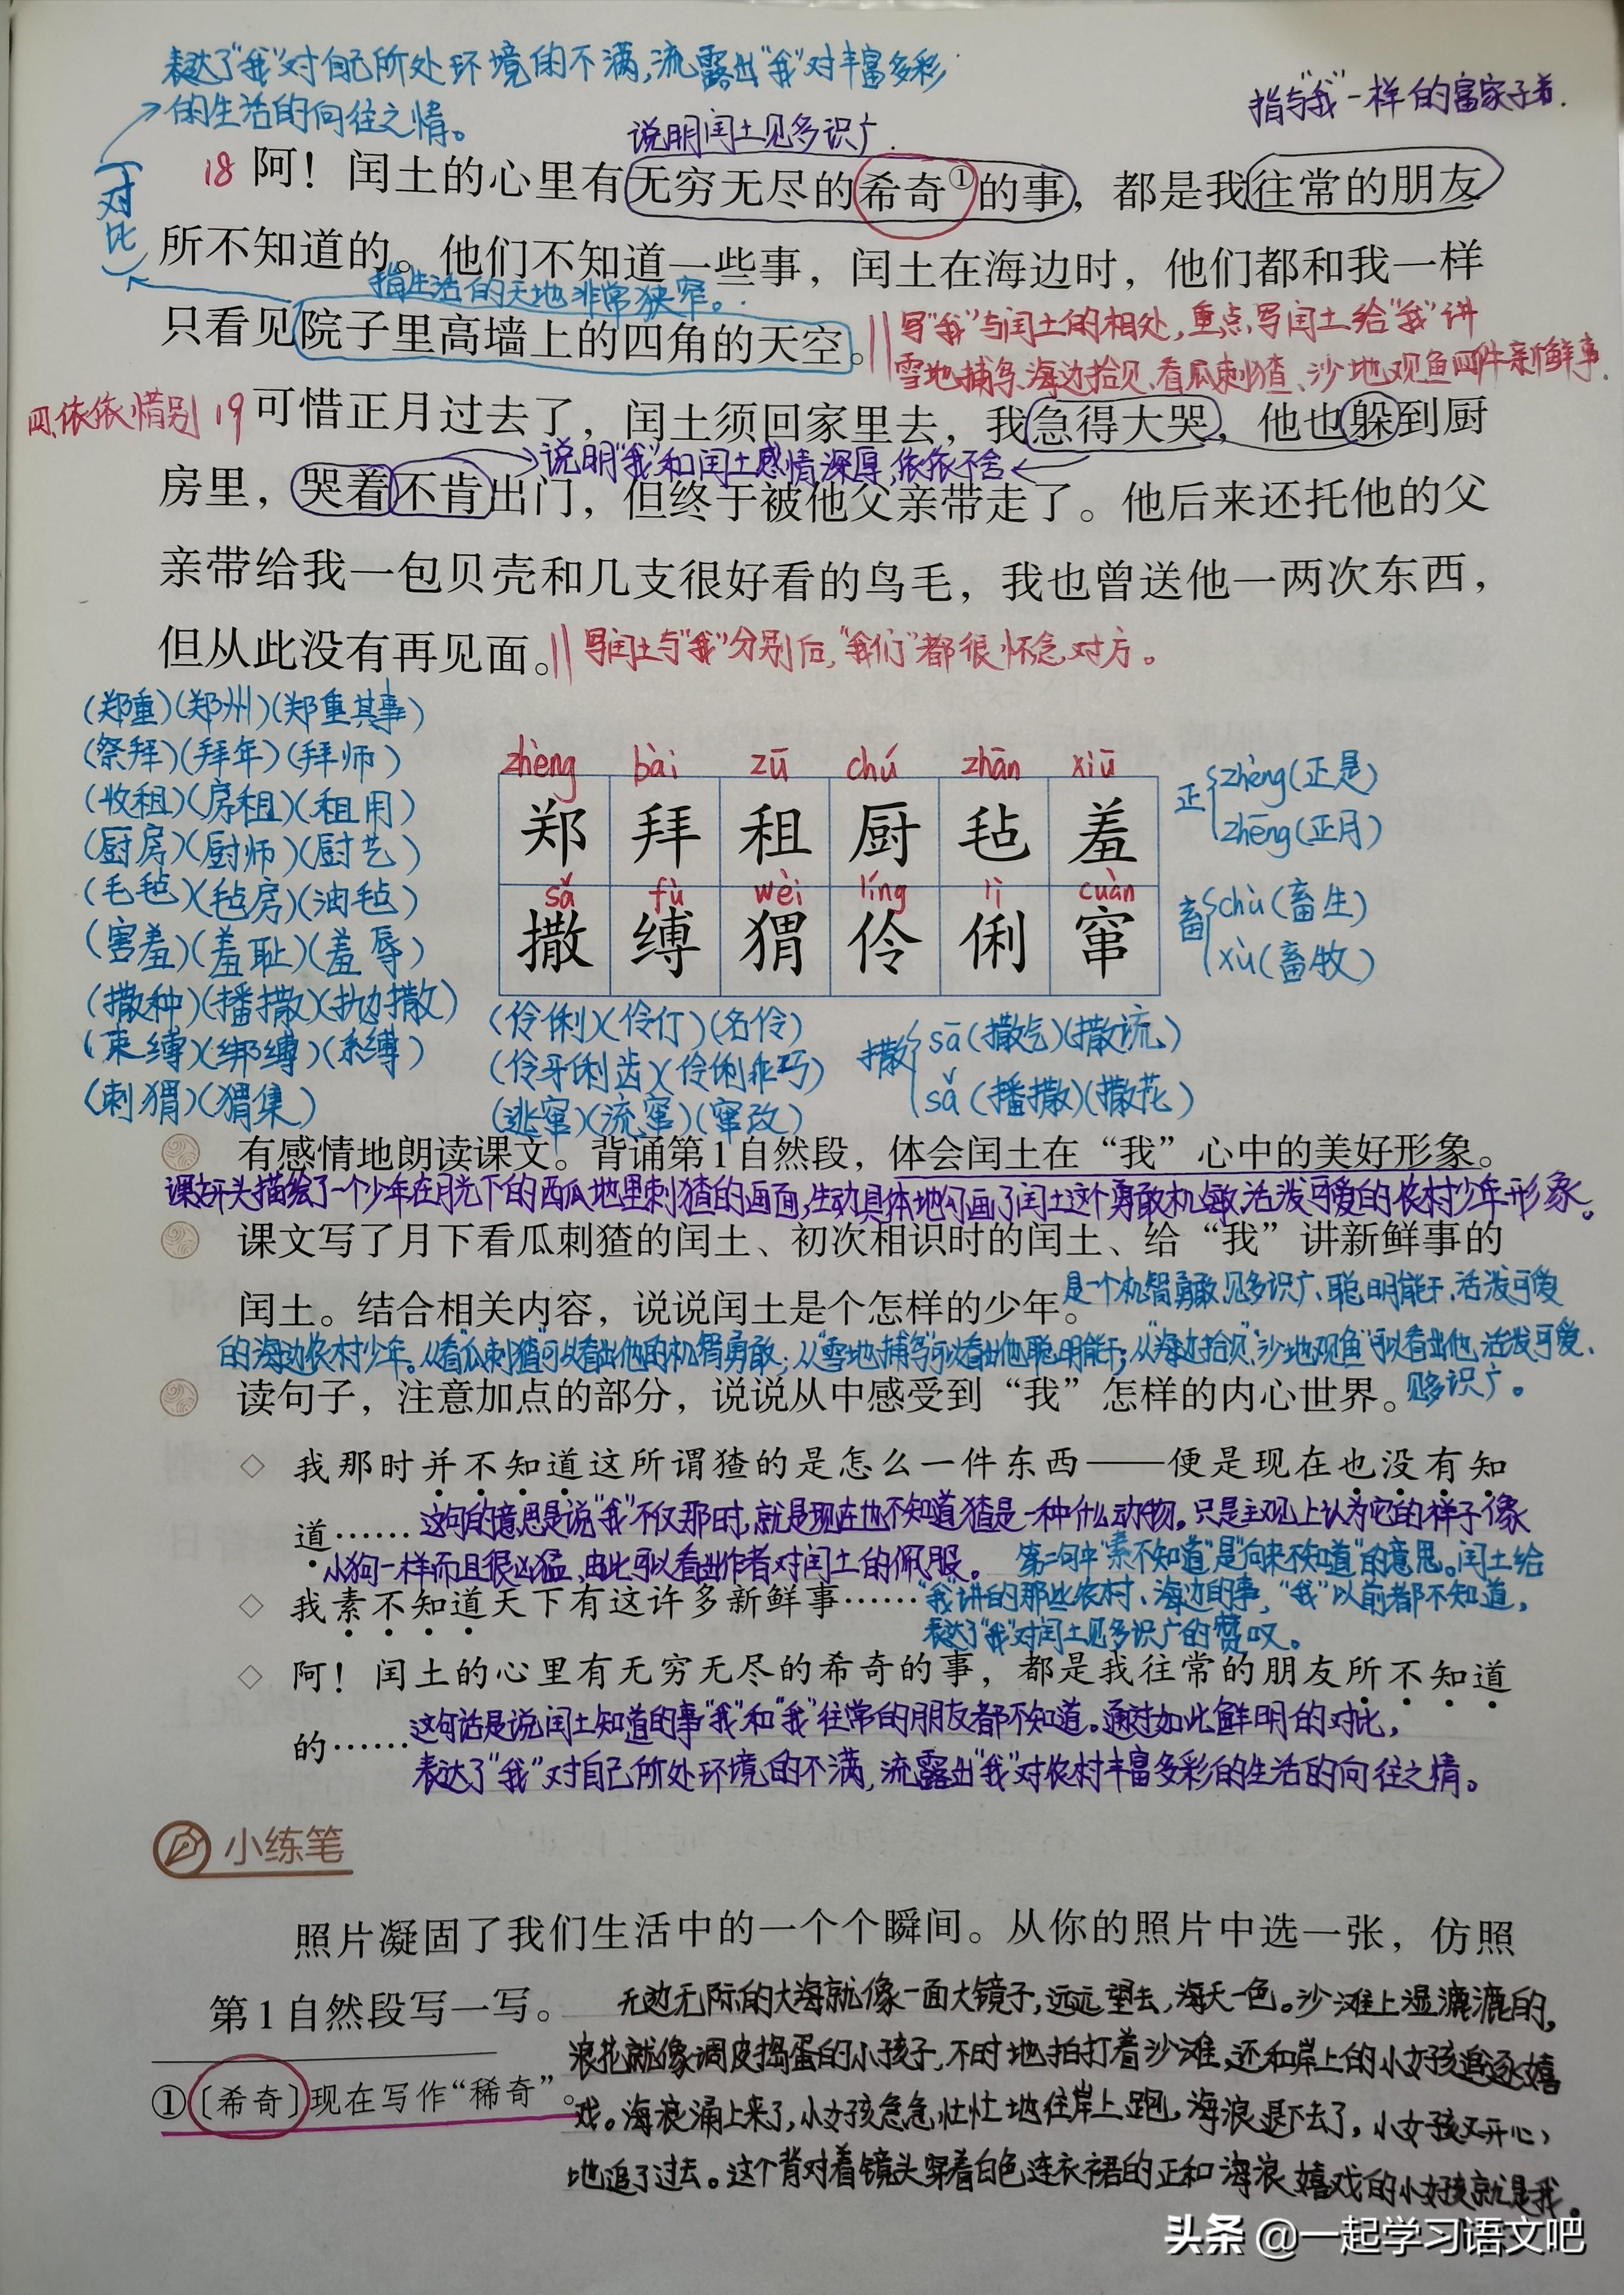 表达了"我"对自己所处环境的不满,流露出"我"对丰富多彩
的生活的向往之情。
指与"我"一样的富家子弟.
说明闰土见多识广.
18 阿！闰土的心里有无穷无尽的希奇①的事，都是我往常的朋友
(对比)
所不知道的。他们不知道一些事，闰土在海边时，他们都和我一样
指生活的天地非常狭窄。
只看见院子里高墙上的四角的天空。
写"我"与闰土的相处,重点写闰土给"我"讲
雪地捕鸟、海边拾贝、看瓜刺猹、沙地观鱼四件新鲜事.
四.依依惜别 19 可惜正月过去了，闰土须回家里去，我急得大哭，他也躲到厨
说明"我"和闰土感情深厚,依依不舍
房里，哭着不肯出门，但终于被他父亲带走了。他后来还托他的父
亲带给我一包贝壳和几支很好看的鸟毛，我也曾送他一两次东西，
但从此没有再见面。
写闰土与"我"分别后,"我们"都很怀念对方。
(郑重)(郑州)(郑重其事)
(祭拜)(拜年)(拜师)
(收租)(房租)(租用)
(厨房)(厨师)(厨艺)
(毛毡)(毡房)(油毡)
(害羞)(羞耻)(羞辱)
(撒种)(播撒)(抛撒)
(束缚)(绑缚)(系缚)
(刺猬)(猬集)
zhèng bài zū chú zhān xiū
郑 拜 租 厨 毡 羞
sǎ fù wèi líng lì cuàn
撒 缚 猬 伶 俐 窜
正 zhèng(正是)
zhēng(正月)
畜 chù(畜生)
xù(畜牧)
(伶俐)(伶仃)(名伶)
(伶牙俐齿)(伶俐乖巧)
(逃窜)(流窜)(窜改)
撒 sā(撒气)(撒谎)
sǎ(播撒)(撒花)
有感情地朗读课文。背诵第1自然段，体会闰土在“我”心中的美好形象。
课文开头描绘了一个少年在月光下的西瓜地里刺猹的画面,生动具体地勾画了闰土这个勇敢机敏、活泼可爱的农村少年形象。
课文写了月下看瓜刺猹的闰土、初次相识时的闰土、给“我”讲新鲜事的
闰土。结合相关内容，说说闰土是个怎样的少年。
是一个机智勇敢、见多识广、聪明能干、活泼可爱
的海边农村少年。从"看瓜刺猹"可以看出他的机智勇敢;从"雪地捕鸟"可以看出他聪明能干;从"海边拾贝""沙地观鱼"可以看出他活泼可爱、
见多识广。
读句子，注意加点的部分，说说从中感受到“我”怎样的内心世界。
◇ 我那时并不知道这所谓猹的是怎么一件东西——便是现在也没有知
道……
这句的意思是说"我"不仅那时,就是现在也不知道猹是一种什么动物。只是主观上认为它的样子像
小狗一样而且很凶猛,由此可以看出作者对闰土的佩服。
第二句中"素不知道"是"向来不知道"的意思。闰土给
◇ 我素不知道天下有这许多新鲜事……
"我"讲的那些农村、海边的事,"我"以前都不知道,
表达了"我"对闰土见多识广的赞叹。
◇ 阿！闰土的心里有无穷无尽的希奇的事，都是我往常的朋友所不知道
的……
这句话是说闰土知道的事"我"和"我"往常的朋友都不知道。通过如此鲜明的对比,
表达了"我"对自己所处环境的不满,流露出"我"对农村丰富多彩的生活的向往之情。
小练笔
照片凝固了我们生活中的一个个瞬间。从你的照片中选一张，仿照
第1自然段写一写。
无边无际的大海就像一面大镜子,远远望去,海天一色。沙滩上湿漉漉的,
浪花就像调皮捣蛋的小孩子,不时地拍打着沙滩,还和岸上的小女孩追逐嬉
戏。海浪涌上来了,小女孩急急忙忙地往岸上跑,海浪退下去了,小女孩又开心
地追了过去。这个背对着镜头穿着白色连衣裙的正和海浪嬉戏的小女孩就是我。
①〔希奇〕现在写作“稀奇”。
头条 @一起学习语文吧